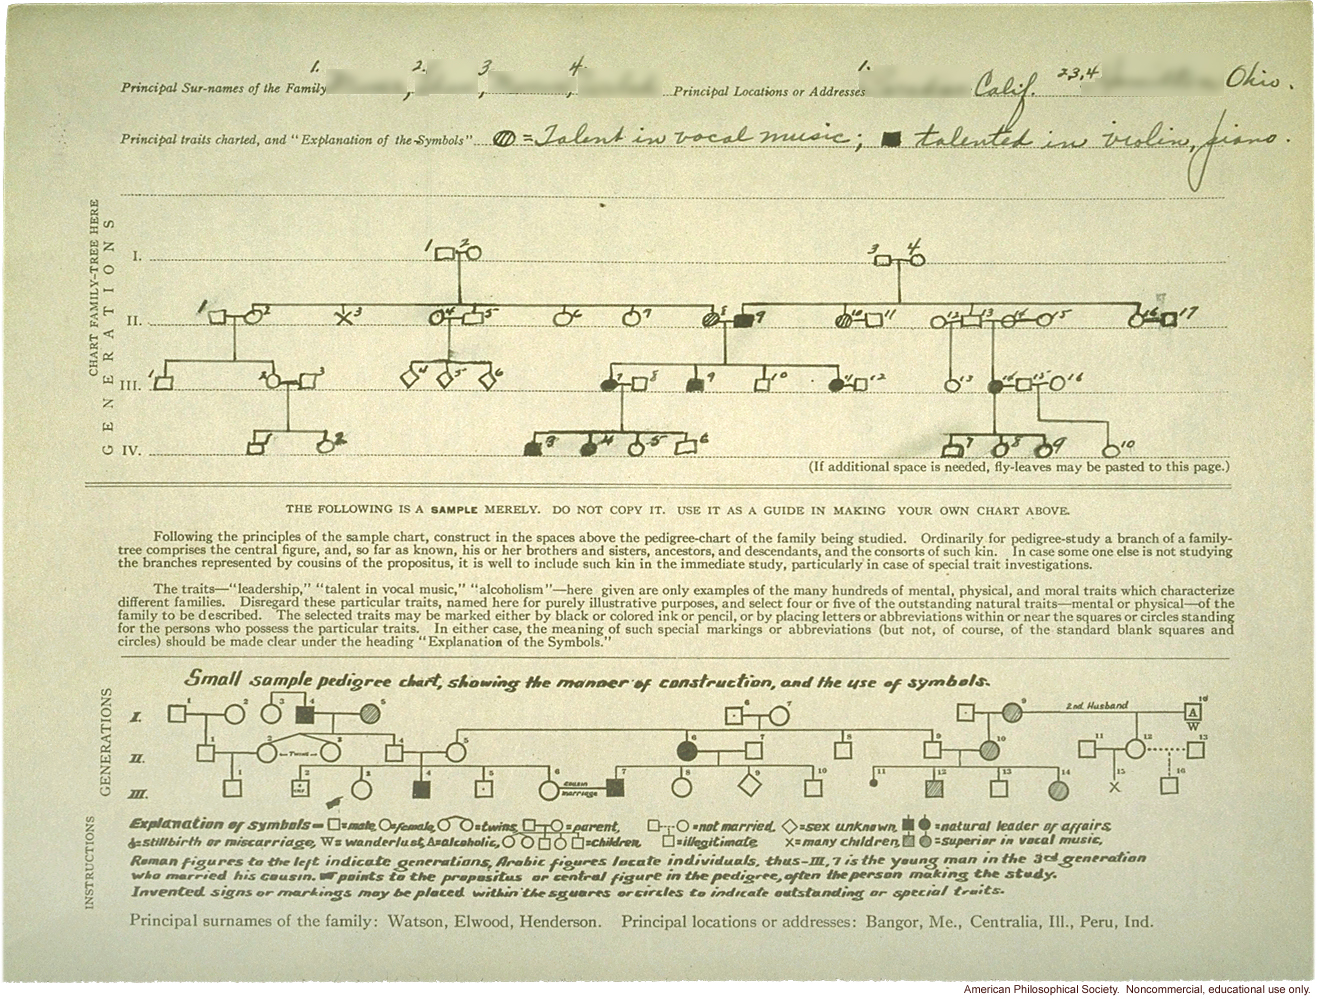 1. 2. 3 4. 1. 2,3,4
Principal Sur-names of the Family , , , Principal Locations or Addresses Calif. Ohio.
Principal traits charted, and "Explanation of the Symbols" = Talent in vocal music; talented in violin, piano.
CHART FAMILY-TREE HERE
GENERATIONS
I. 1 2 3 4
II. 1 2 X 3 4 5 6 7 8 9 10 11 12 13 14 15 16 17
III. 1 2 3 4 5 6 7 8 9 10 11 12 13 14 15 16
IV. 1 2 3 4 5 6 7 8 9 10
(If additional space is needed, fly-leaves may be pasted to this page.)
THE FOLLOWING IS A SAMPLE MERELY. DO NOT COPY IT. USE IT AS A GUIDE IN MAKING YOUR OWN CHART ABOVE.
Following the principles of the sample chart, construct in the spaces above the pedigree-chart of the family being studied. Ordinarily for pedigree-study a branch of a family-
tree comprises the central figure, and, so far as known, his or her brothers and sisters, ancestors, and descendants, and the consorts of such kin. In case some one else is not studying
the branches represented by cousins of the propositus, it is well to include such kin in the immediate study, particularly in case of special trait investigations.
The traits—"leadership," "talent in vocal music," "alcoholism"—here given are only examples of the many hundreds of mental, physical, and moral traits which characterize
different families. Disregard these particular traits, named here for purely illustrative purposes, and select four or five of the outstanding natural traits—mental or physical—of the
family to be described. The selected traits may be marked either by black or colored ink or pencil, or by placing letters or abbreviations within or near the squares or circles standing
for the persons who possess the particular traits. In either case, the meaning of such special markings or abbreviations (but not, of course, of the standard blank squares and
circles) should be made clear under the heading "Explanation of the Symbols."
Small sample pedigree chart, showing the manner of construction, and the use of symbols.
GENERATIONS
I. 1 2 3 4 5 6 7 9 2nd Husband 10 A W
II. 1 2 Twins 3 4 5 6 7 8 9 10 11 12 13
III. 1 2 3 4 5 6 cousin marriage 7 8 9 10 11 12 13 14 15 X 16
INSTRUCTIONS
Explanation of symbols— =male, =female, =twins, =parent, =not married, =sex unknown, =natural leader of affairs,
=stillbirth or miscarriage, W=wanderlust, A=alcoholic, =children, =illegitimate, X=many children, =superior in vocal music,
Roman figures to the left indicate generations, Arabic figures locate individuals, thus—III, 7 is the young man in the 3rd generation
who married his cousin. points to the propositus or central figure in the pedigree, often the person making the study.
Invented signs or markings may be placed within the squares or circles to indicate outstanding or special traits.
Principal surnames of the family: Watson, Elwood, Henderson. Principal locations or addresses: Bangor, Me., Centralia, Ill., Peru, Ind.
American Philosophical Society. Noncommercial, educational use only.